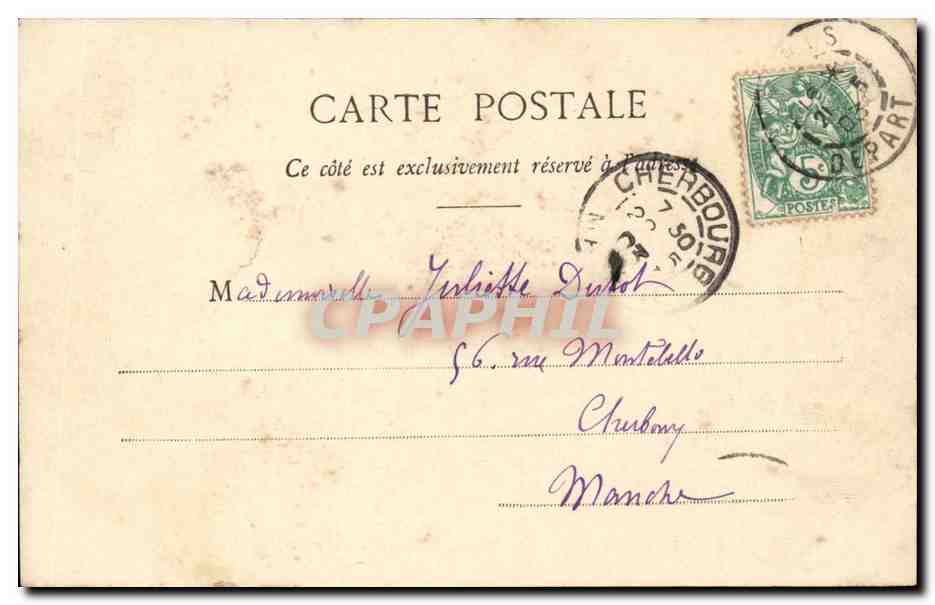 CARTE POSTALE
Ce côté est exclusivement réservé à l'adresse
DEPART
5
POSTES
CHERBOURG
7 30
Mademoiselle Juliette Dutot
CPAPHIL
56. rue Montebello
Cherbourg
Manche